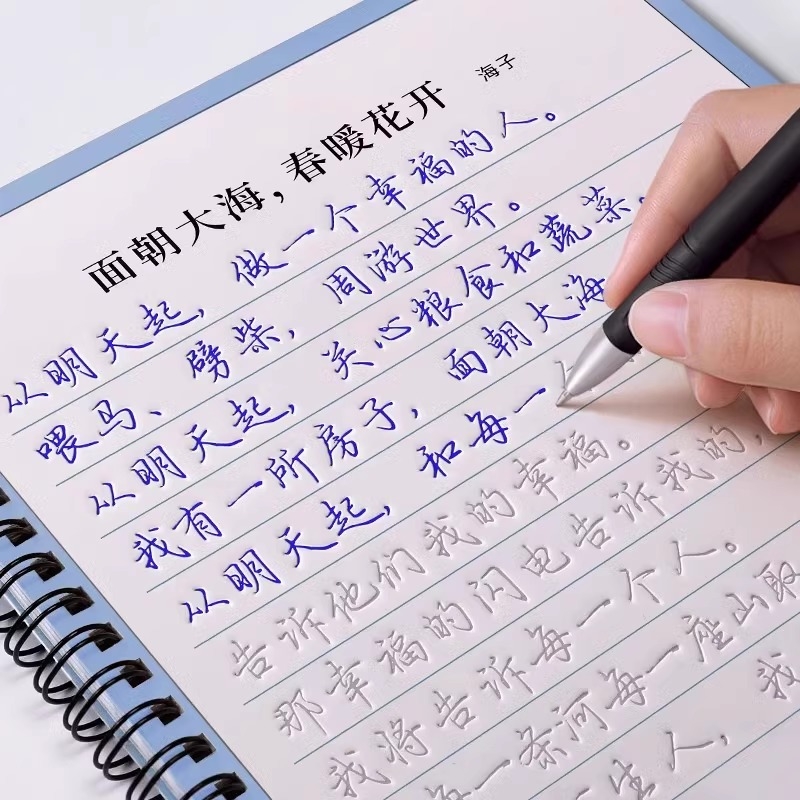 面朝大海,春暖花开
海子
从明天起,做一个幸福的人。
喂马、劈柴,周游世界。
从明天起,关心粮食和蔬菜。
我有一所房子,面朝大海
从明天起,和每一
告诉他们我的幸福。
那幸福的闪电告诉我的,
我将告诉每一个人。
每一条河每一座山取
生人,我